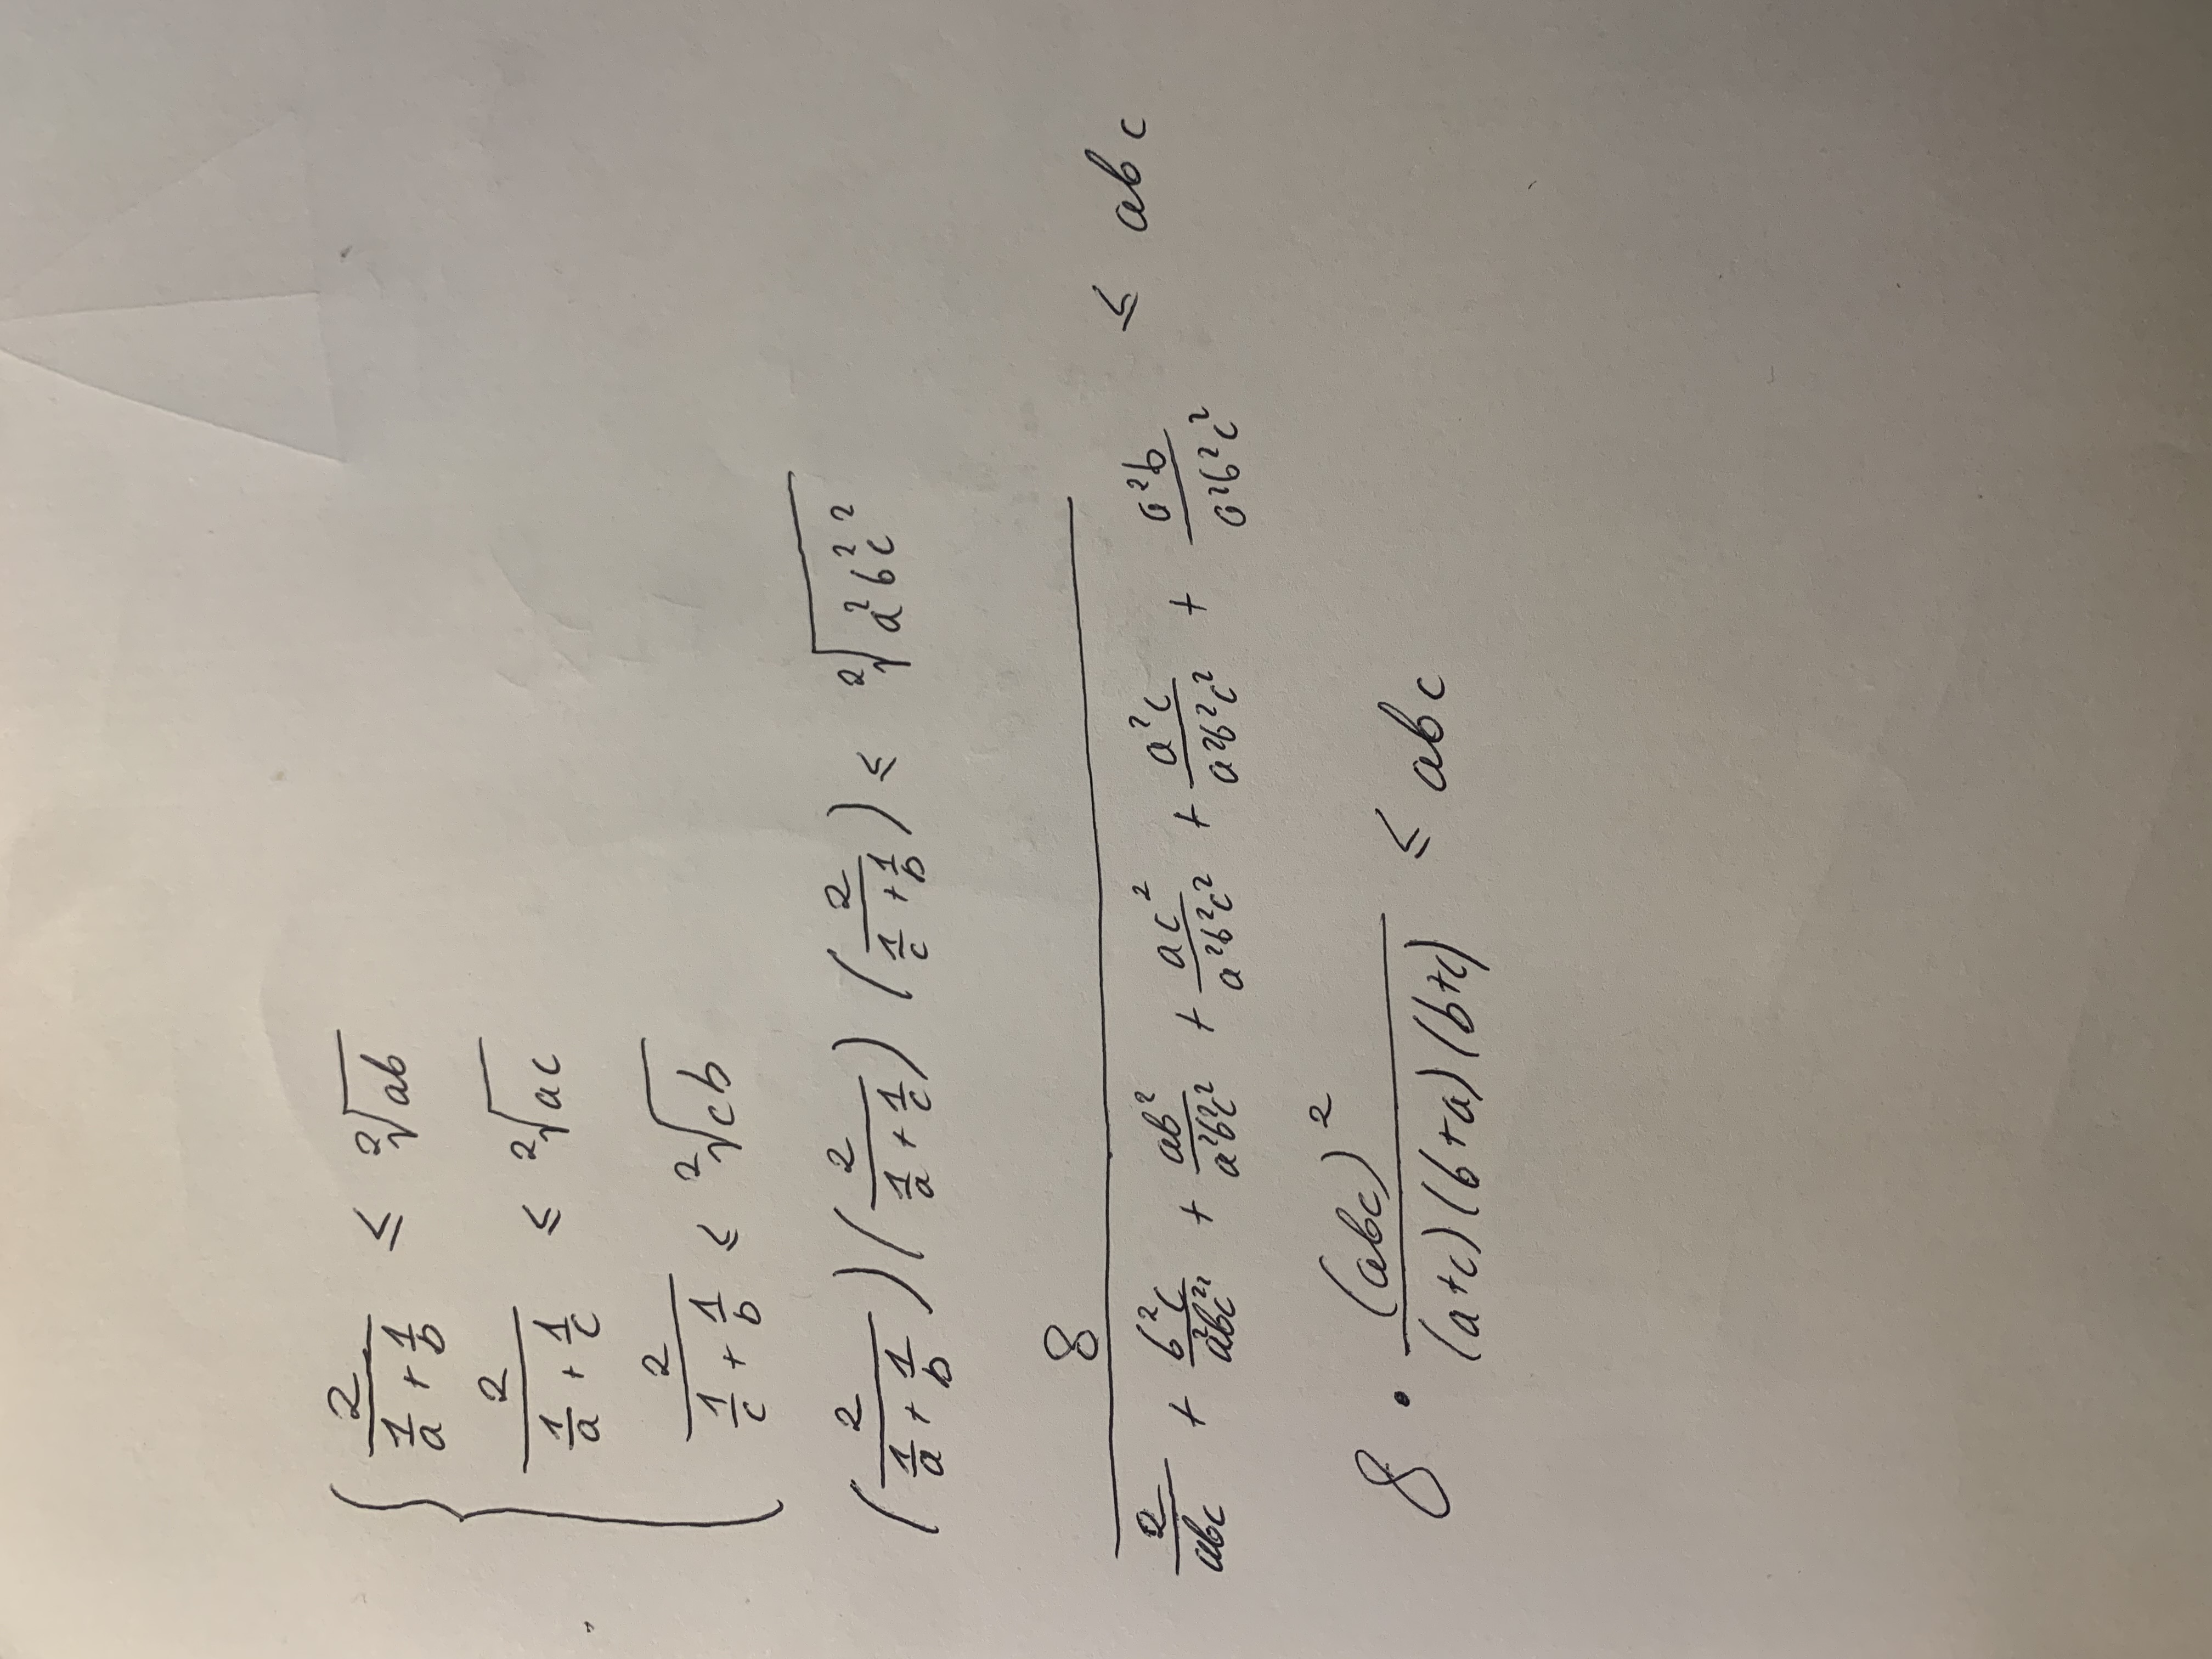 { 2/(1/a + 1/b) ≤ ²√(ab)
2/(1/a + 1/c) ≤ ²√(ac)
2/(1/c + 1/b) ≤ ²√(cb)
(2/(1/a + 1/b)) (2/(1/a + 1/c)) (2/(1/c + 1/b)) ≤ ²√(a²b²c²)
8/(2/abc + b²c/a²b²c² + ab²/a²b²c² + ac²/a²b²c² + a²c/a²b²c² + a²b/a²b²c²) ≤ abc
8 · (abc)²/((a+c)(b+a)(b+c)) ≤ abc